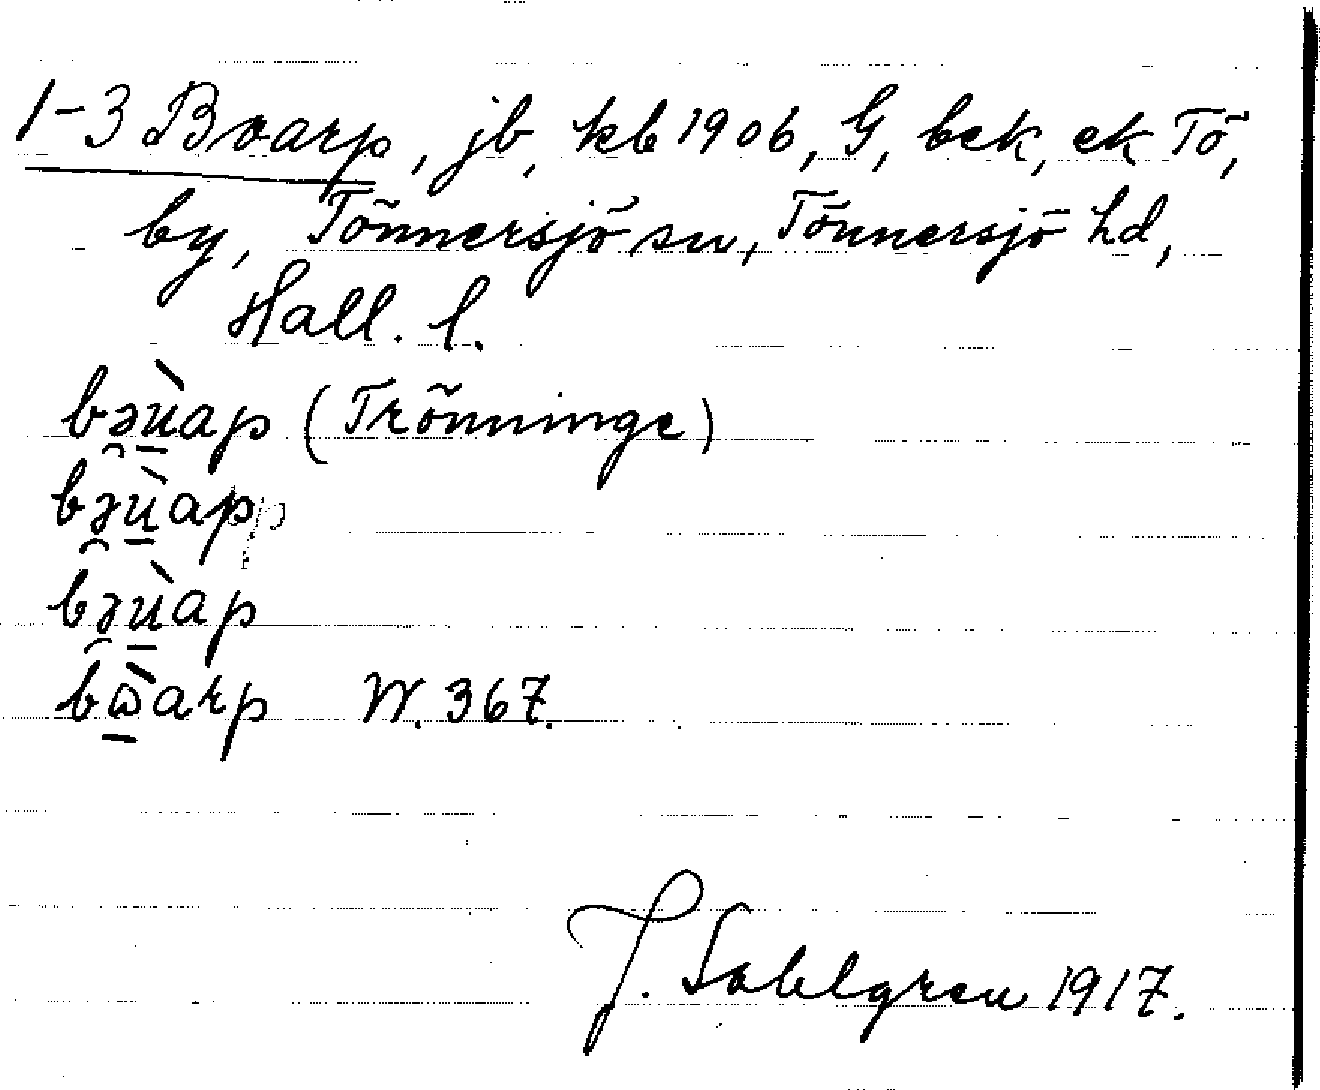 1-3 Boarp, jb, kb 1906, G, bek, ek Tö,
by, Tönnersjö sn, Tönnersjö hd,
Hall. l.
bə̯ùap (Trönninge)
bə̯ùap
bə̯ùap
bὼarp W. 367.
J. Sahlgren 1917.